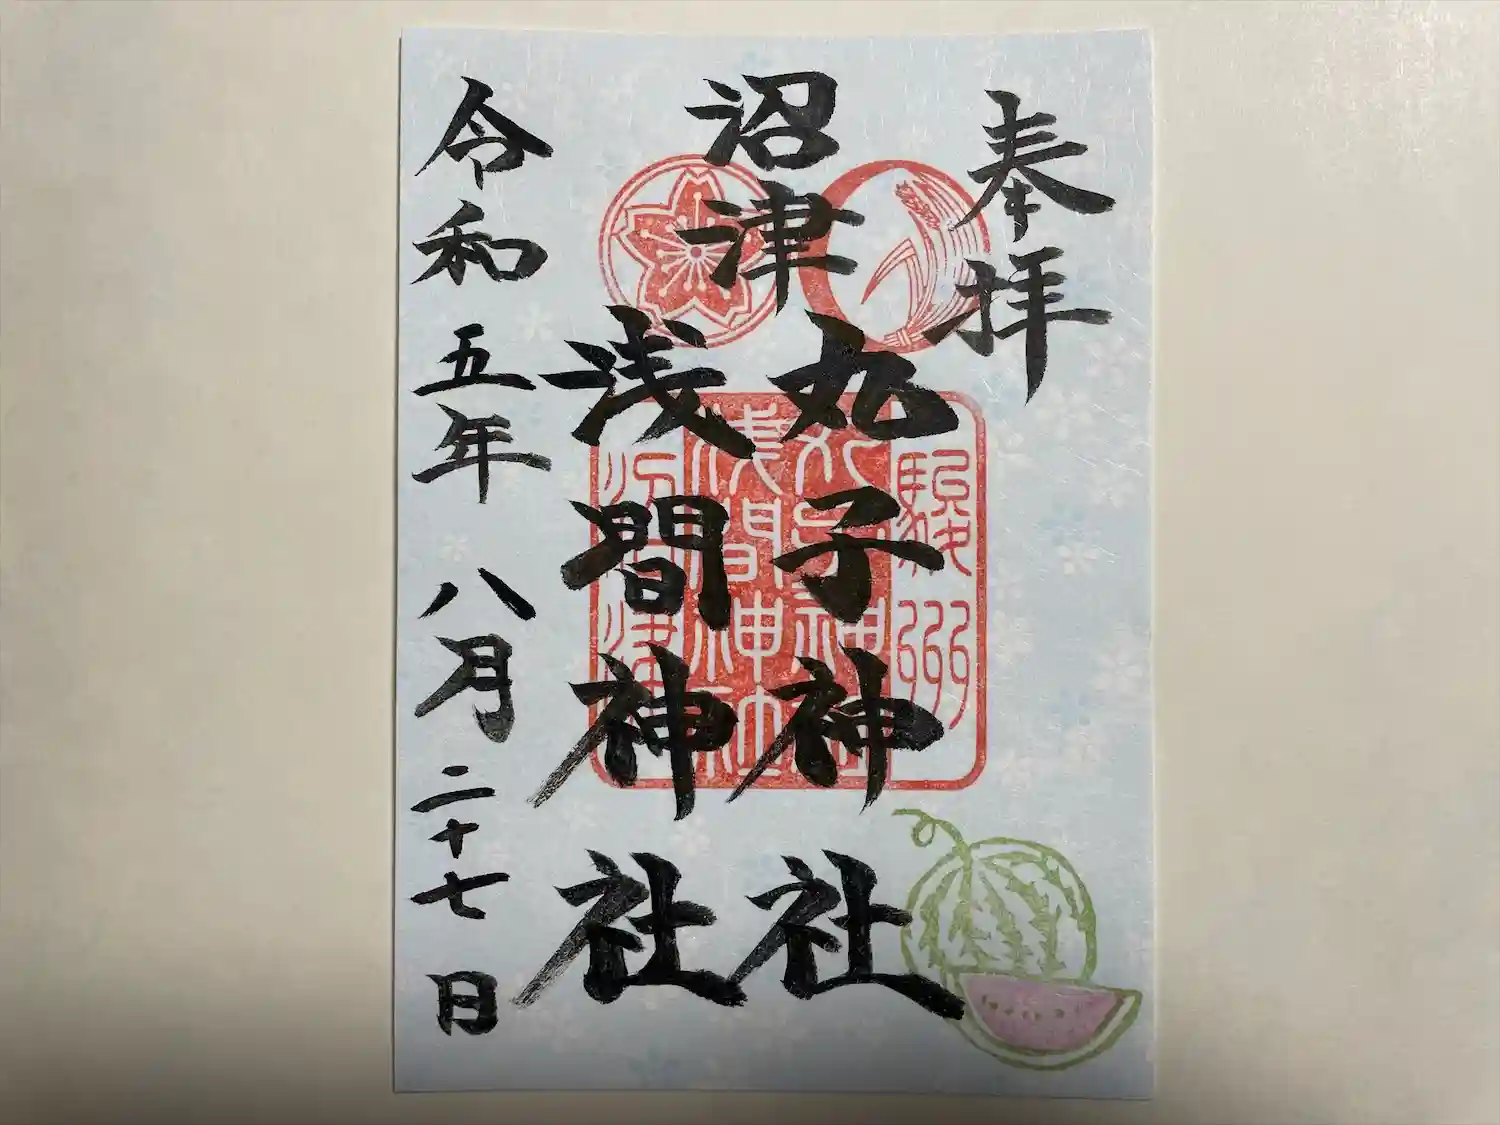 奉拝
沼津
丸子神社
浅間神社
令和五年八月二十七日
駿州
丸子神社
浅間神社
沼津